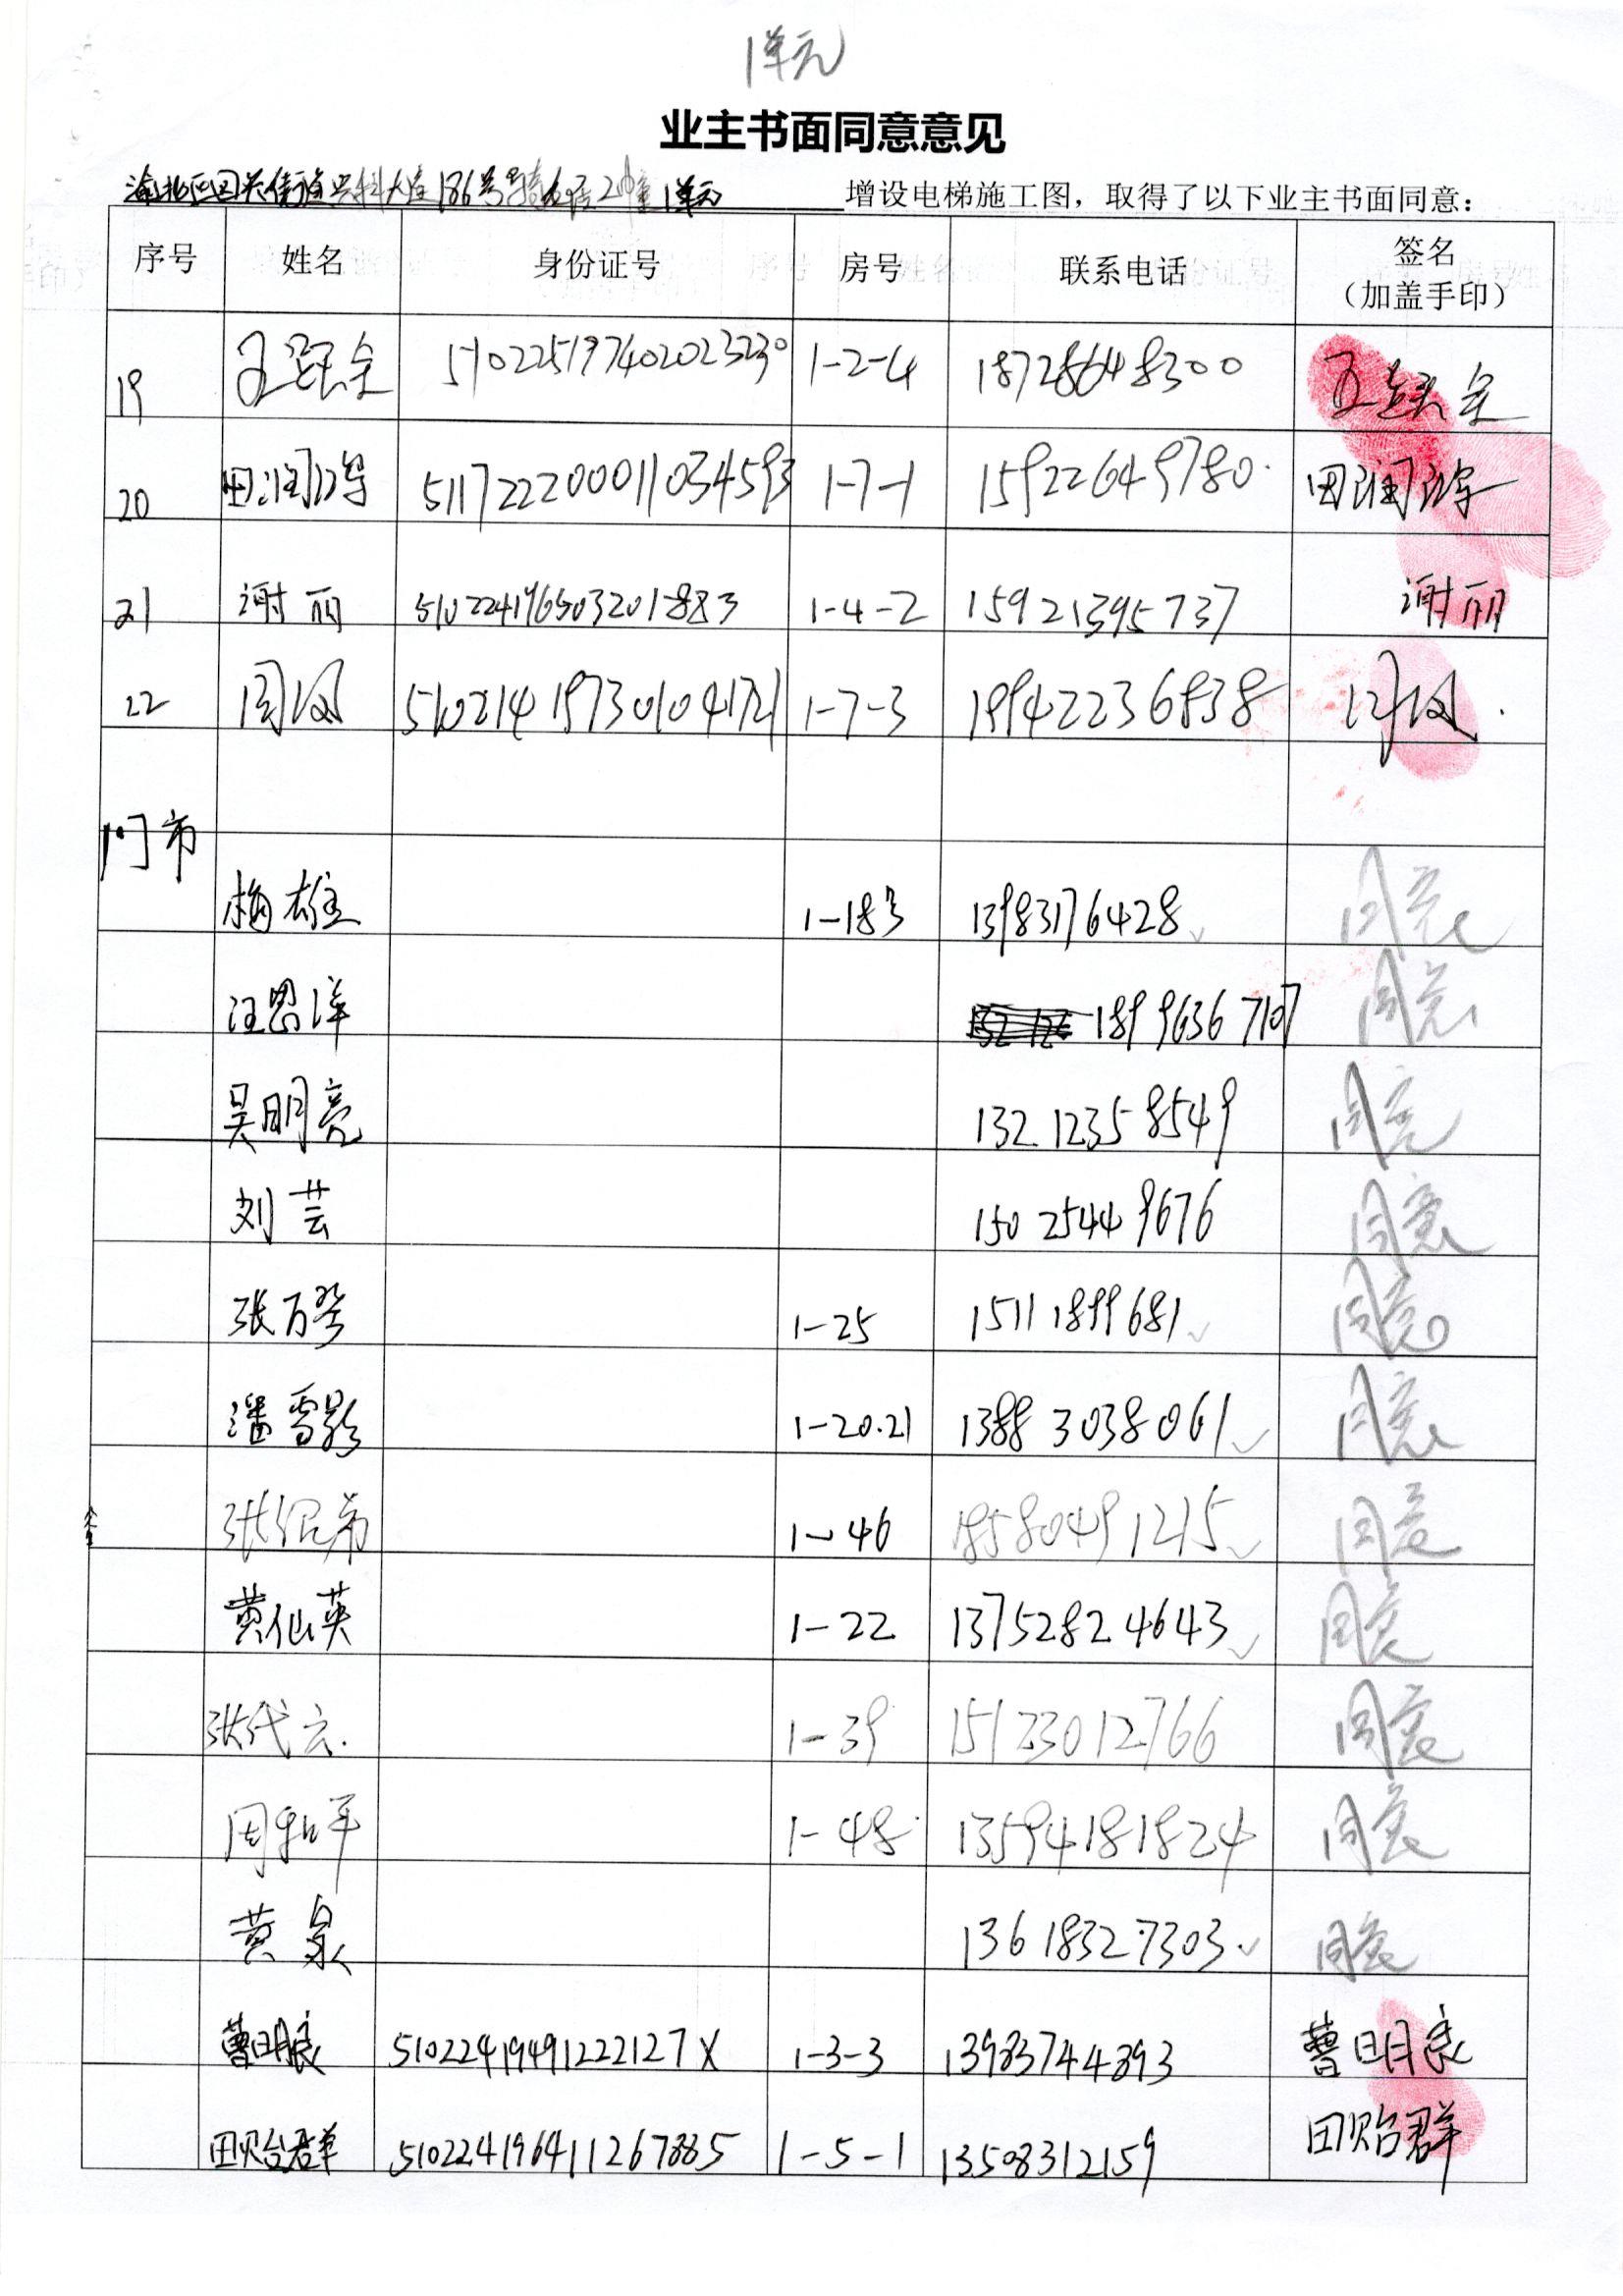 1单元
业主书面同意意见
1单元 增设电梯施工图，取得了以下业主书面同意：
序号 姓名 身份证号 房号 联系电话 签名（加盖手印）
19 510225197402023230 1-2-4 18728648300
20 田润 511722200011034593 1-7-1 15922649780 田润
21 谢丽 510224196503201883 1-4-2 15921395737 谢丽
22 周 510214197301041721 1-7-3 19942236838
门市
梅雄 1-183 13983176428 同意
汪思洋 18996367107 同意
吴明亮 132 1235 8549 同意
刘芸 150 2544 9676 同意
张万琴 1-25 1511 1899 681 同意
潘雪影 1-20.21 1388 3038 061 同意
张 1-46 18580491215 同意
黄仙英 1-22 13752824643 同意
张代云. 1-39 15123012766 同意
周和平 1-48 13594181824 同意
黄泉 136 1832 7303 同意
曹明良 51022419491222127X 1-3-3 13983744893 曹明良
田贻群 510224196411267885 1-5-1 13508312159 田贻群